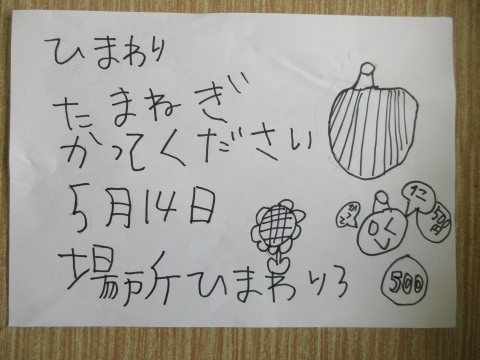 ひまわり
たまねぎ
かってください
5月14日
場所ひまわりろ
500円
500